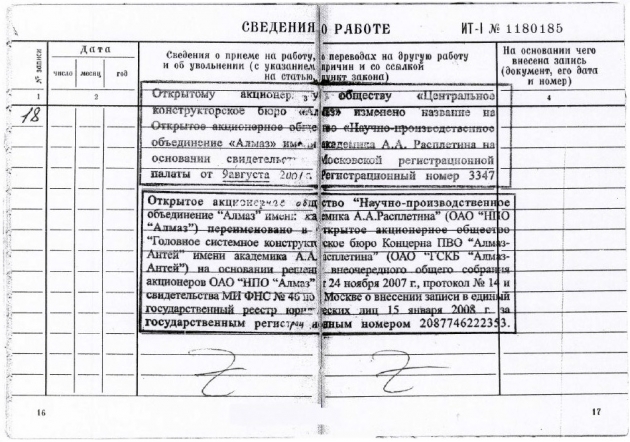 СВЕДЕНИЯ О РАБОТЕ
ИТ-I № 1180185
№ записи
Дата
число месяц год
Сведения о приеме на работу, о переводах на другую работу
и об увольнении (с указанием причин и со ссылкой
на статью, пункт закона)
На основании чего
внесена запись
(документ, его дата
и номер)
1 2 3 4
18
Открытому акционерному обществу «Центральное
конструкторское бюро «Алмаз» изменено название на
Открытое акционерное общество «Научно-производственное
объединение «Алмаз» имени академика А.А. Расплетина на
основании свидетельства Московской регистрационной
палаты от 9августа 2001г. Регистрационный номер 3347
Открытое акционерное общество "Научно-производственное
объединение "Алмаз" имени академика А.А.Расплетина" (ОАО "НПО
"Алмаз") переименовано в Открытое акционерное общество
"Головное системное конструкторское бюро Концерна ПВО "Алмаз-
Антей" имени академика А.А. Расплетина" (ОАО "ГСКБ "Алмаз-
Антей") на основании решения внеочередного общего собрания
акционеров ОАО "НПО "Алмаз" от 24 ноября 2007 г., протокол № 14 и
свидетельства МИ ФНС № 46 по г. Москве о внесении записи в единый
государственный реестр юридических лиц 15 января 2008 г. за
государственным регистрационным номером 2087746222353.
16
17